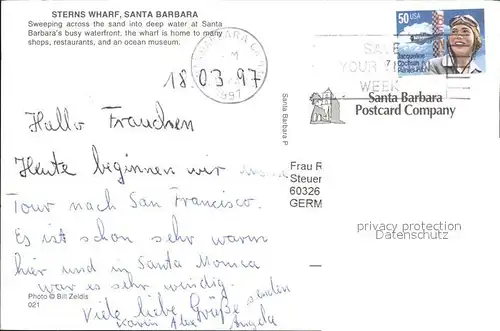 STERNS WHARF, SANTA BARBARA
Sweeping across the sand into deep water at Santa
Barbara's busy waterfront, the wharf is home to many
shops, restaurants, and an ocean museum.
18.03.97
Hallo Frauchen
Heute beginnen wir
Tour nach San Francisco.
Es ist schon sehr warm
hier und in Santa Monica
war es sehr windig.
Viele liebe Grüße senden
Karin Alex Angela
Photo © Bill Zeldis
021
Santa Barbara P
BARBARA CA
M
1997
50 USA
Jacqueline
Cochran
Pioneer Pilot
YOUR
WEEK
Santa Barbara
Postcard Company
Frau R
Steuer
60326
GERM
privacy protection
Datenschutz